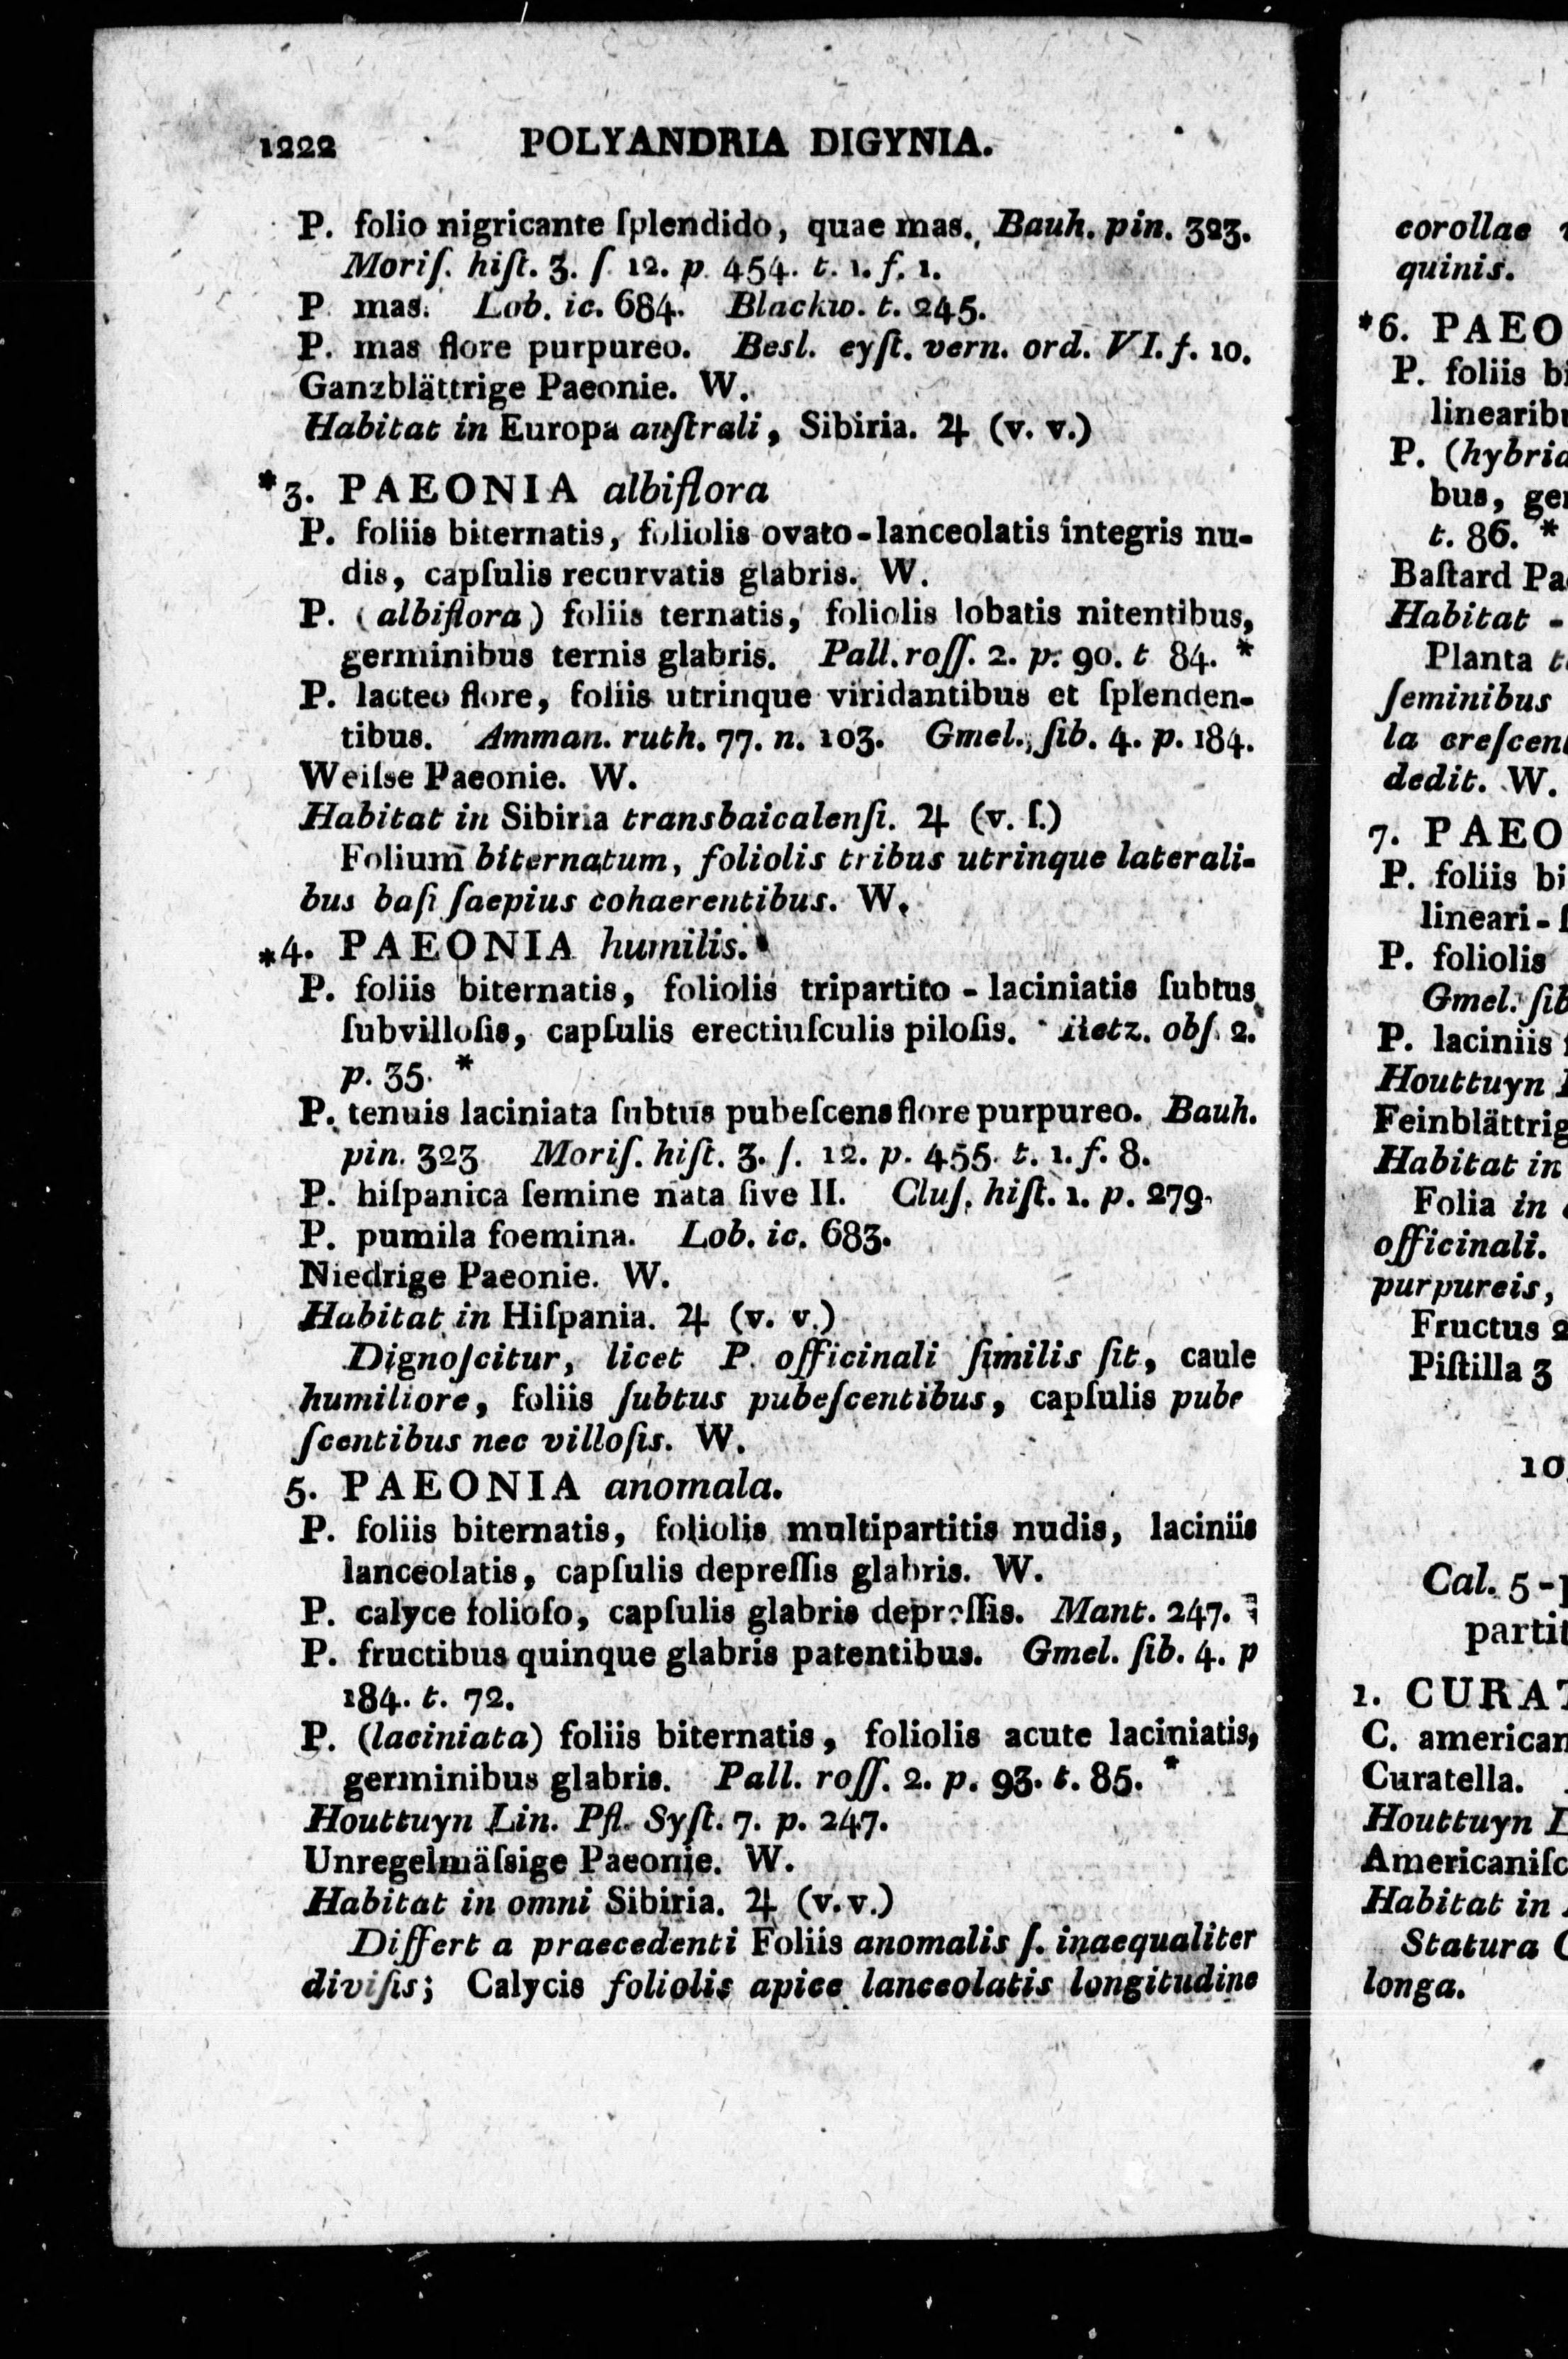 1222 POLYANDRIA DIGYNIA.
P. folio nigricante ſplendido, quae mas. Bauh. pin. 323.
Moriſ. hiſt. 3. ſ. 12. p. 454. t. 1. f. 1.
P. mas. Lob. ic. 684. Blackw. t. 245.
P. mas flore purpureo. Besl. eyſt. vern. ord. VI. f. 10.
Ganzblättrige Paeonie. W.
Habitat in Europa auſtrali, Sibiria. ♃ (v. v.)
*3. PAEONIA albiflora
P. foliis biternatis, foliolis ovato-lanceolatis integris nu-
dis, capſulis recurvatis glabris. W.
P. (albiflora) foliis ternatis, foliolis lobatis nitentibus,
germinibus ternis glabris. Pall. roſſ. 2. p. 90. t 84. *
P. lacteo flore, foliis utrinque viridantibus et ſplenden-
tibus. Amman. ruth. 77. n. 103. Gmel. ſib. 4. p. 184.
Weiſse Paeonie. W.
Habitat in Sibiria transbaicalenſi. ♃ (v. ſ.)
Folium biternatum, foliolis tribus utrinque laterali-
bus baſi ſaepius cohaerentibus. W.
*4. PAEONIA humilis.
P. foliis biternatis, foliolis tripartito-laciniatis ſubtus
ſubvilloſis, capſulis erectiuſculis piloſis. Retz. obſ. 2.
p. 35. *
P. tenuis laciniata ſubtus pubeſcens flore purpureo. Bauh.
pin. 323 Moriſ. hiſt. 3. ſ. 12. p. 455. t. 1. f. 8.
P. hiſpanica ſemine nata ſive II. Cluſ. hiſt. 1. p. 279.
P. pumila foemina. Lob. ic. 683.
Niedrige Paeonie. W.
Habitat in Hiſpania. ♃ (v. v.)
Dignoſcitur, licet P. officinali ſimilis ſit, caule
humiliore, foliis ſubtus pubeſcentibus, capſulis pube
ſcentibus nec villoſis. W.
5. PAEONIA anomala.
P. foliis biternatis, foliolis multipartitis nudis, laciniis
lanceolatis, capſulis depreſſis glabris. W.
P. calyce folioſo, capſulis glabris depreſſis. Mant. 247.
P. fructibus quinque glabris patentibus. Gmel. ſib. 4. p
184. t. 72.
P. (laciniata) foliis biternatis, foliolis acute laciniatis,
germinibus glabris. Pall. roſſ. 2. p. 93. t. 85. *
Houttuyn Lin. Pfl. Syſt. 7. p. 247.
Unregelmäſsige Paeonie. W.
Habitat in omni Sibiria. ♃ (v. v.)
Differt a praecedenti Foliis anomalis ſ. inaequaliter
diviſis; Calycis foliolis apice lanceolatis longitudine
corollae
quinis.
*6. PAEO
P. foliis bi
linearibu
P. (hybrid
bus, ger
t. 86. *
Baſtard Pa
Habitat -
Planta
ſeminibus
la creſcent
dedit. W.
7. PAEO
P. foliis bi
lineari-
P. foliolis
Gmel. ſib
P. laciniis
Houttuyn
Feinblättrig
Habitat in
Folia in
officinali.
purpureis,
Fructus 2
Piſtilla 3
10
Cal. 5-
partit
1. CURAT
C. american
Curatella.
Houttuyn
Americaniſc
Habitat in
Statura
longa.